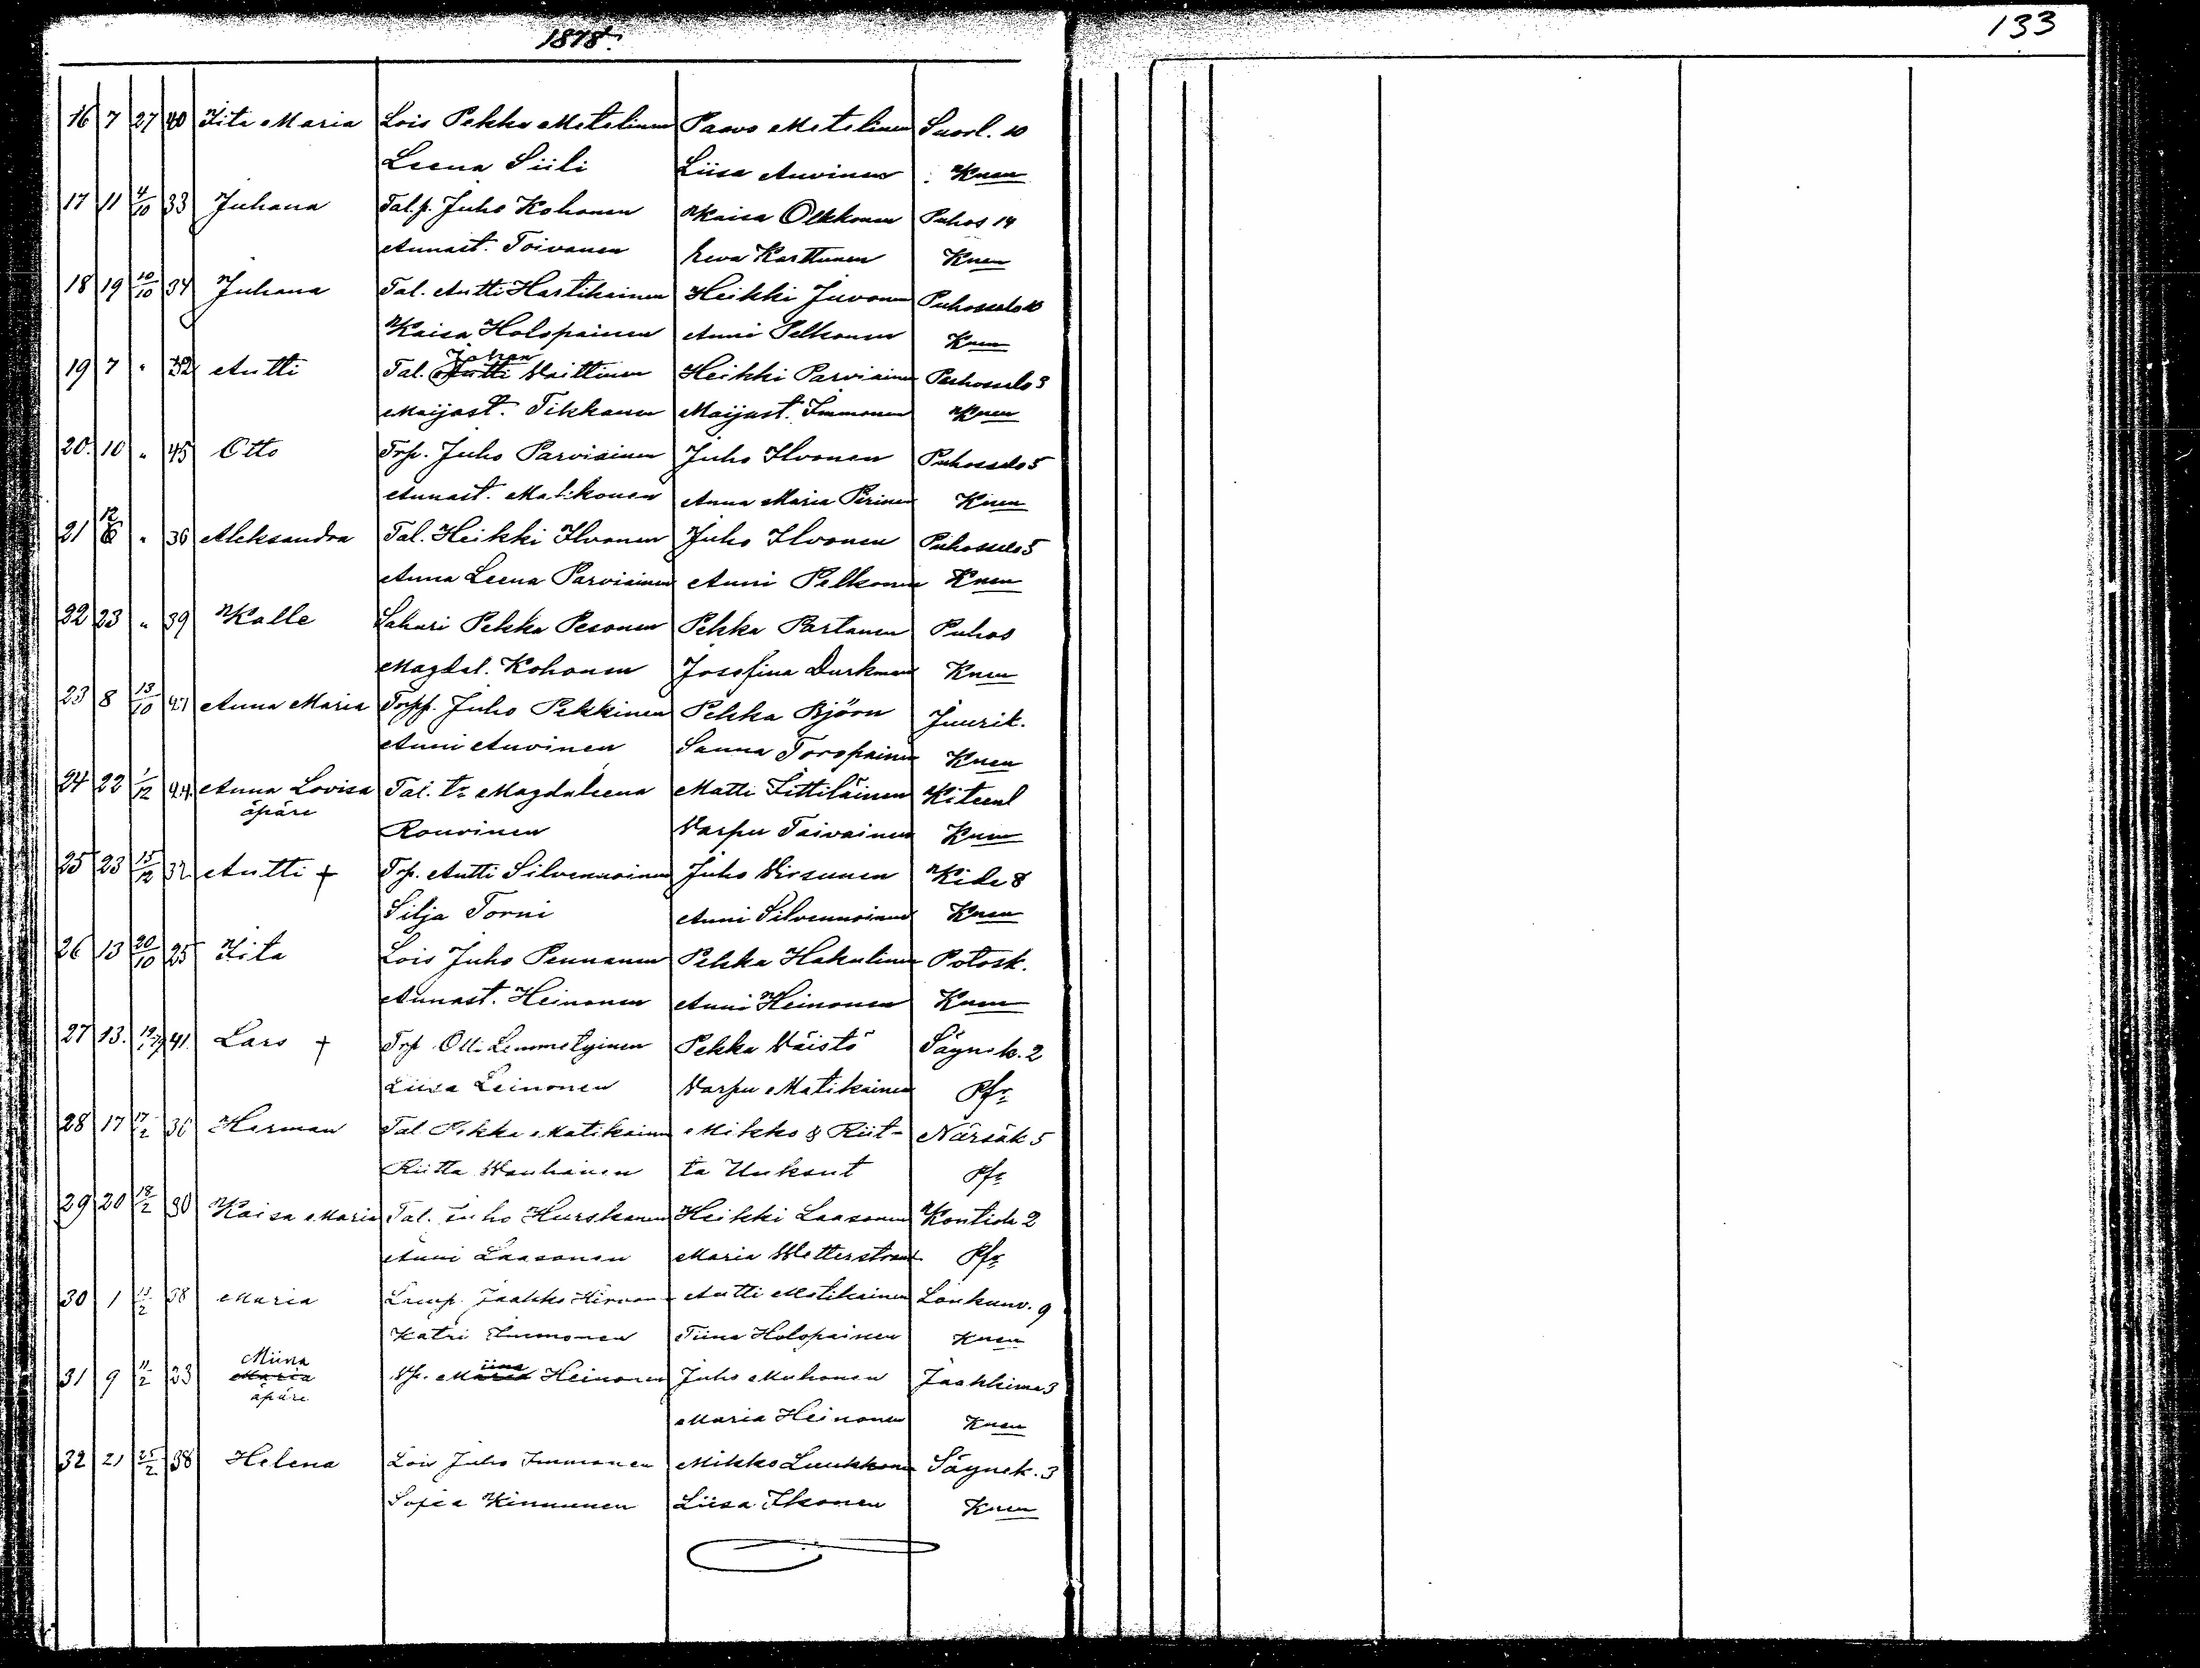 1878.
133
16 7 27 40 Iita Maria Lois Pekka Metelinen Paavo Metelinen Suorl. 10
Leena Siili Liisa Auvinen Knen
17 11 4/10 33 Juhana Tal.p. Juho Kohonen Kaisa Olkkonen Puhos 14
Annast. Toivanen Eeva Karttunen Knen
18 19 10/10 34 Juhana Tal. Antti Hartikainen Heikki Juvonen Puhossalo 10
Kaisa Holopainen Anni Pelkonen Knen
Johan
19 7 " 32 Antti Tal. Antti Waittinen Heikki Parviainen Puhossalo 3
Maijast. Tikkanen Maijast. Immonen Knen
20. 10 " 45 Otto Trp. Juho Parviainen Juho Ilvonen Puhossalo 5
Annast. Matikonen Anna Maria Pirinen Knen
12
21 6 " 36 Aleksandra Tal. Heikki Ilvonen Juho Ilvonen Puhossalo 5
Anna Leena Parviainen Anni Pelkonen Knen
22 23 " 39 Kalle Sahuri Pekka Pesonen Pekka Partanen Puhos
Magdal. Kohonen Josefina Durkman Knen
23 8 13/10 27 Anna Maria Torpp. Juho Pekkinen Pekka Björn Juurik.
Anni Auvinen Sanna Toropainen Knen
24 22 1/12 24 Anna Lovisa Tal. tr Magdaleena Matti Littiläinen Kiteenl
äpäre
Rouvinen Varpu Taivainen Knen
25 23 15/12 32 Antti † Trp. Antti Silvennoinen Juho Hirsunen Kide 8
Silja Torni Anni Silvennoinen Knen
26 13 20/10 25 Iita Lois Juho Pennanen Pekka Hakulinen Potosk.
Annast. Heinonen Anni Heinonen Knen
27 13. 41 Lars † Trp Olli Lemmetyinen Pekka Väistö Säynek. 2
Liisa Leinonen Varpu Matikainen Pfr
28 17 17/2 36 Herman Tal Pekka Matikainen Mikko & Riit-Närsäk 5
Riitta Wanhanen ta Unkant Pfr
29 20 18/2 30 Kaisa Maria Tal. Juho Hurskanen Heikki Laasonen Kontiola 2
Anni Laasonen Maria Wetterstrand Pfr
30 1 2 38 Maria Lamp. Jaakko Hirvon Antti Matikainen Loukunv. 9
Katri Immonen Tiina Holopainen Knen
Miina
31 9 11/2 23 Maria Maria iina Heinonen Juho Muhonen Jaakkima 3
äpäre
Maria Heinonen Knen
32 21 25/2 38 Helena Lois Juho Immonen Mikko Luukkonen Säynek. 3
Sofia Kinnunen Liisa Ikonen Knen